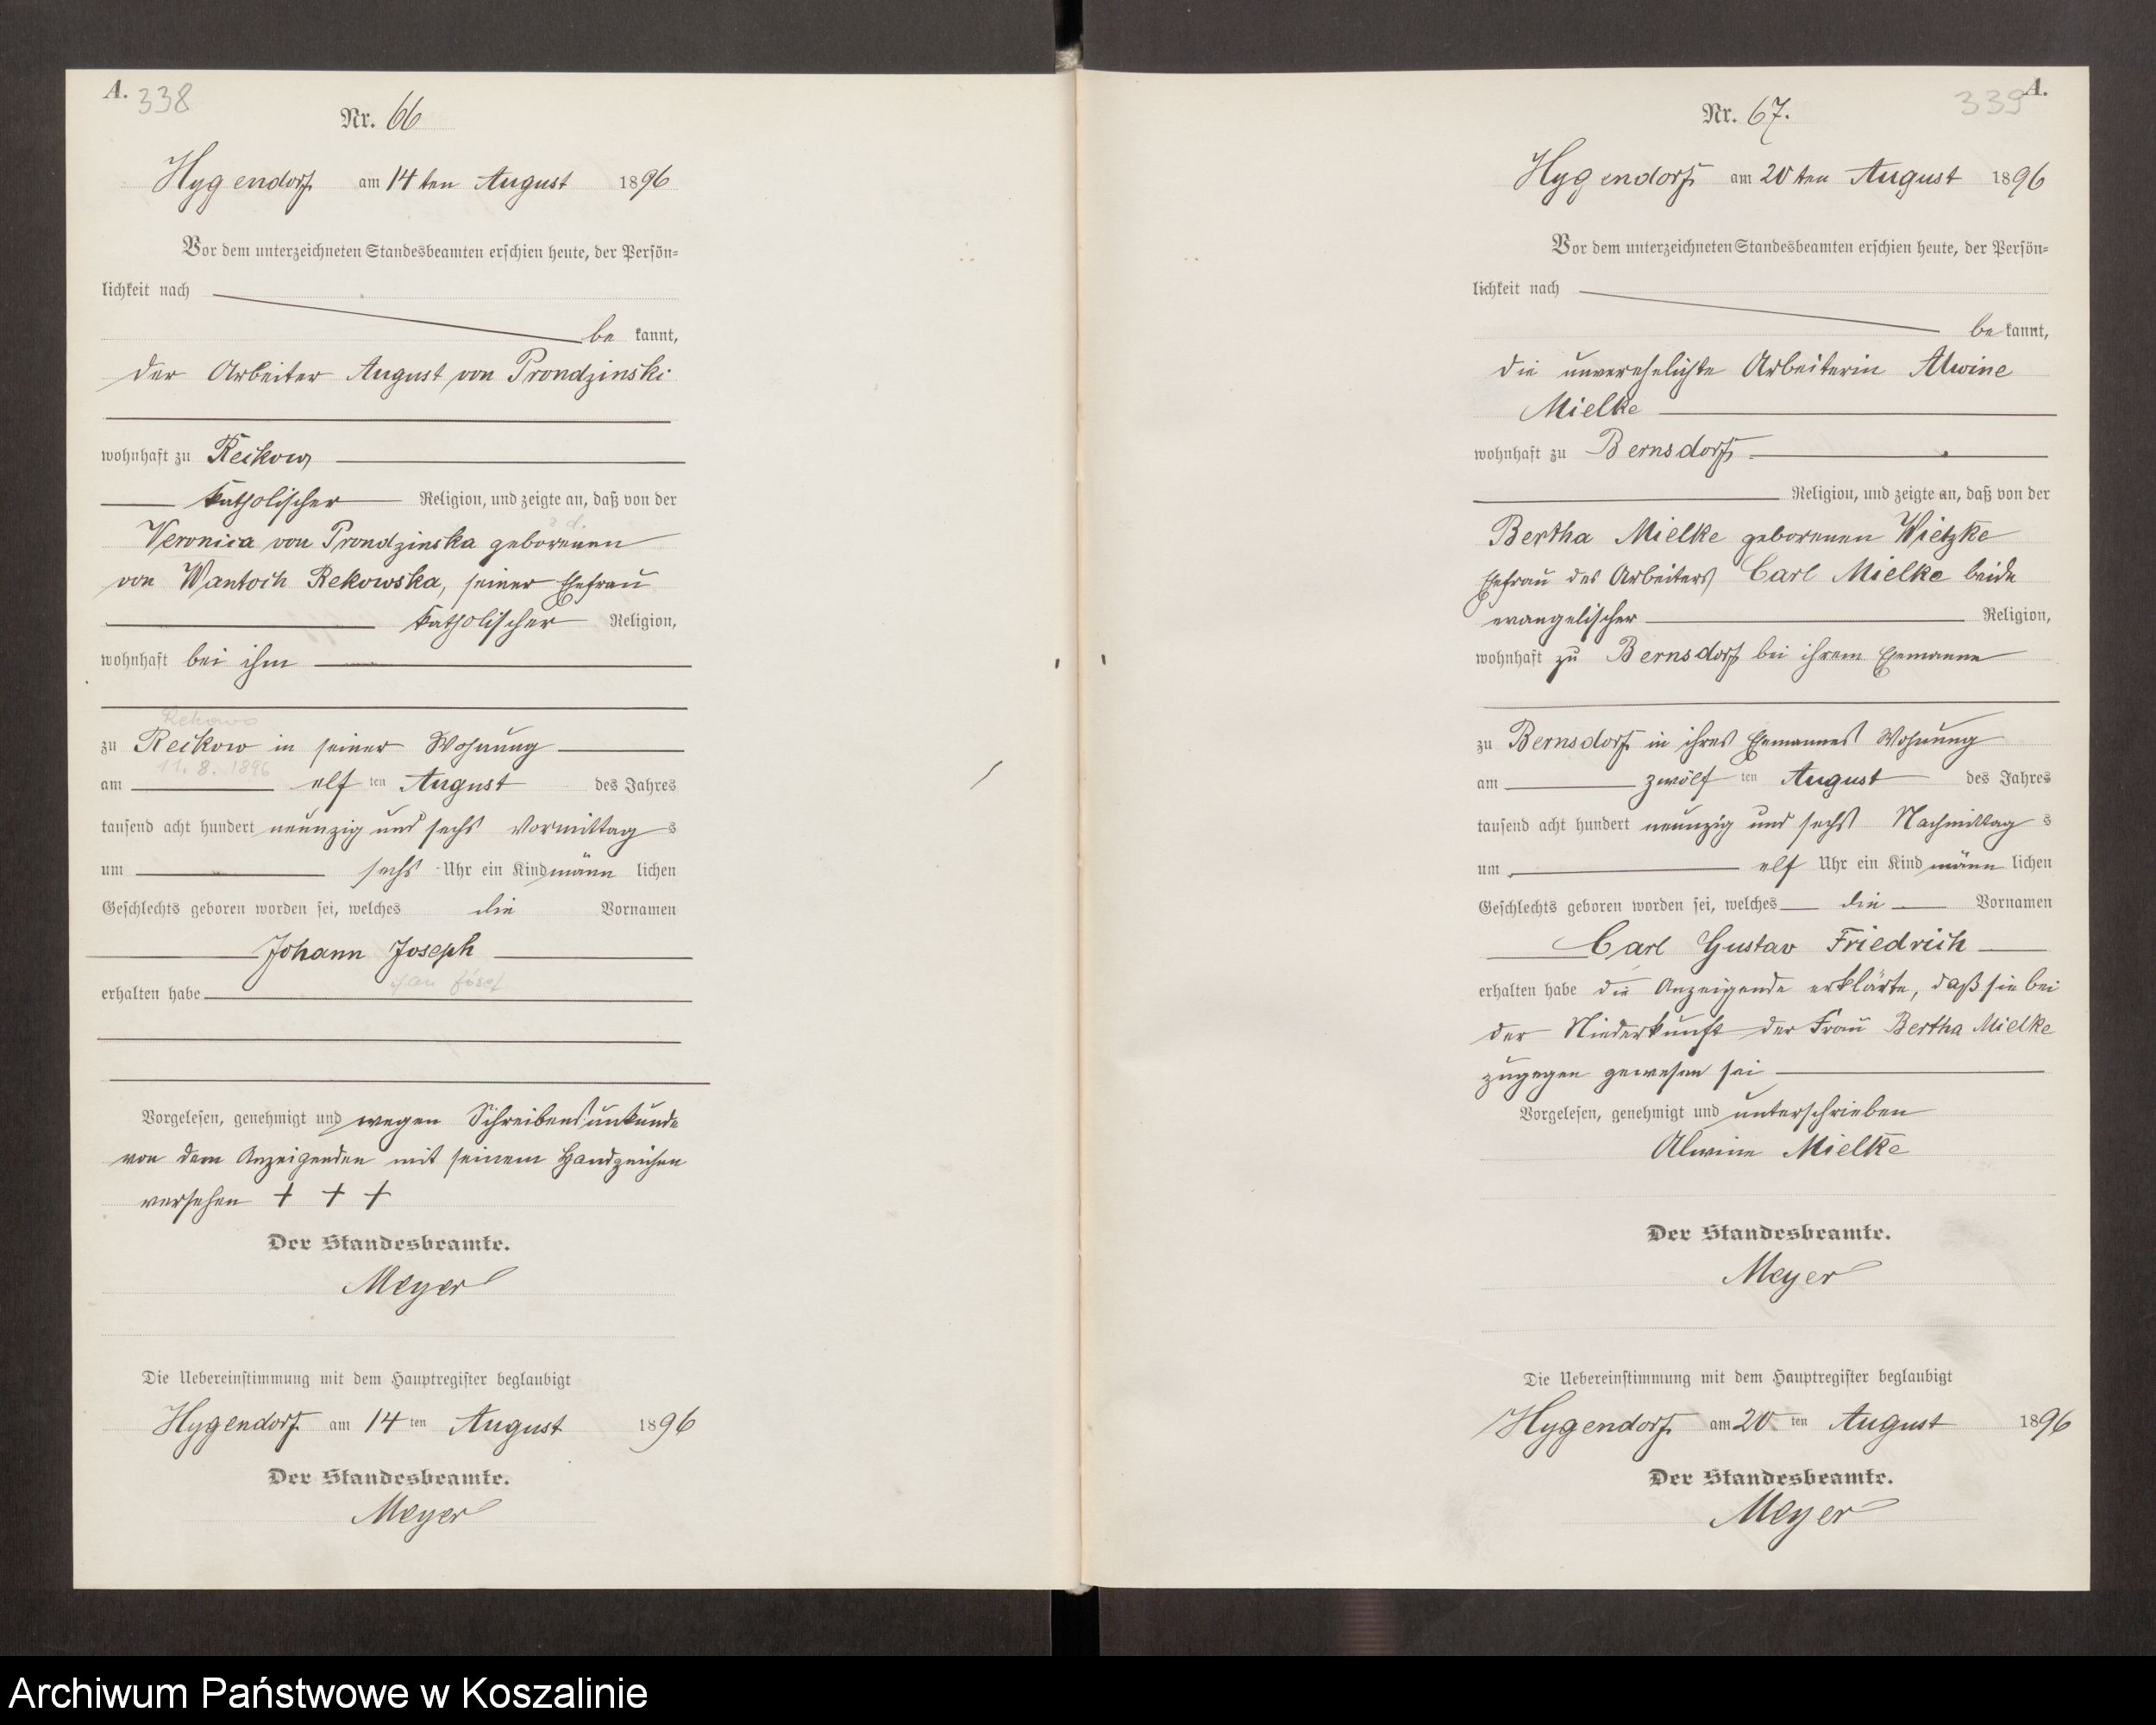 A. 338
Nr. 66
Hygendorf am 14ten August 1896
Vor dem unterzeichneten Standesbeamten erschien heute, der Persön-
lichkeit nach
be kannt,
der Arbeiter August von Prondzinski
wohnhaft zu Reikow
katholischer Religion, und zeigte an, daß von der
Veronica von Prondzinska geborenen
von Wantoch Rekowska, seiner Ehefrau
katholischer Religion,
wohnhaft bei ihm
Rekowo
zu Reikow in seiner Wohnung
11. 8. 1896
am elf ten August des Jahres
tausend acht hundert neunzig und sechs Vormittag s
um sechs Uhr ein Kind männ lichen
Geschlechts geboren worden sei, welches die Vornamen
Johann Joseph
Jan Józef
erhalten habe
Vorgelesen, genehmigt und wegen Schreibensunkunde
von dem Anzeigenden mit seinem Handzeichen
versehen + + +
Der Standesbeamte.
Meyer
Die Uebereinstimmung mit dem Hauptregister beglaubigt
Hygendorf am 14 ten August 1896
Der Standesbeamte.
Meyer
339 A.
Nr. 67.
Hygendorf am 20ten August 1896
Vor dem unterzeichneten Standesbeamten erschien heute, der Persön-
lichkeit nach
be kannt,
die unverehelichte Arbeiterin Alwine
Mielke
wohnhaft zu Bernsdorf
Religion, und zeigte an, daß von der
Bertha Mielke geborenen Wietzke
Ehefrau des Arbeiters Carl Mielke beide
evangelischer Religion,
wohnhaft zu Bernsdorf bei ihrem Ehemanne
zu Bernsdorf in ihres Ehemannes Wohnung
am zwölf ten August des Jahres
tausend acht hundert neunzig und sechs Nachmittag s
um elf Uhr ein Kind männ lichen
Geschlechts geboren worden sei, welches die Vornamen
Carl Gustav Friedrich
erhalten habe die Anzeigende erklärte, daß sie bei
der Niederkunft der Frau Bertha Mielke
zugegen gewesen sei
Vorgelesen, genehmigt und unterschrieben
Alwine Mielke
Der Standesbeamte.
Meyer
Die Uebereinstimmung mit dem Hauptregister beglaubigt
Hygendorf am 20 ten August 1896
Der Standesbeamte.
Meyer
Archiwum Państwowe w Koszalinie